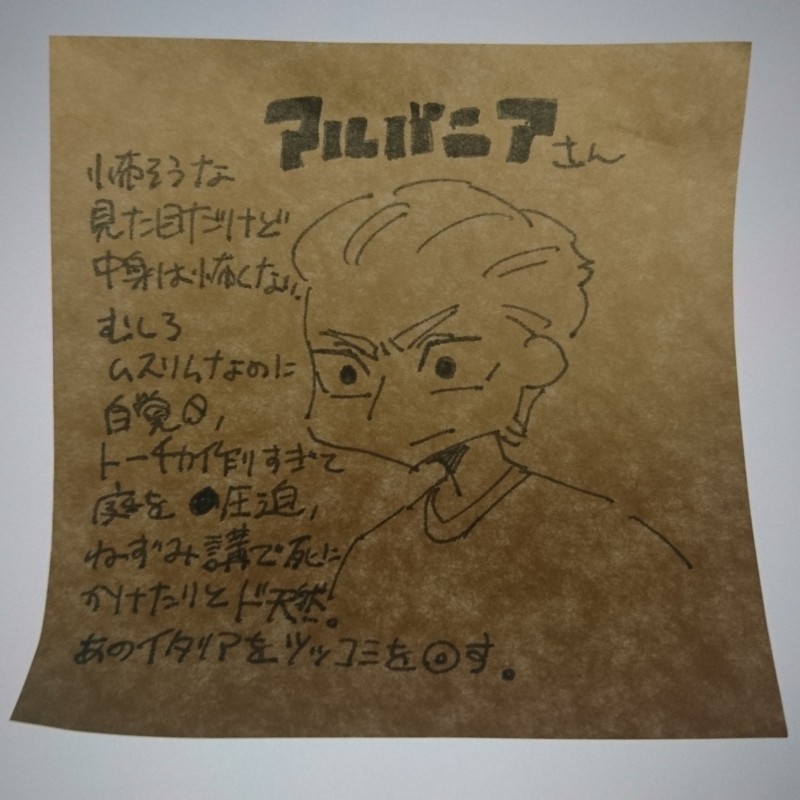 アルバニアさん
怖そうな
見た目だけど
中身は怖くない。
むしろ
ムスリムなのに
自覚0,
トーチカ作りすぎて
庭を圧迫,
ねずみ講で死に
かけたりとド天然。
あのイタリアをツッコミを◎す。